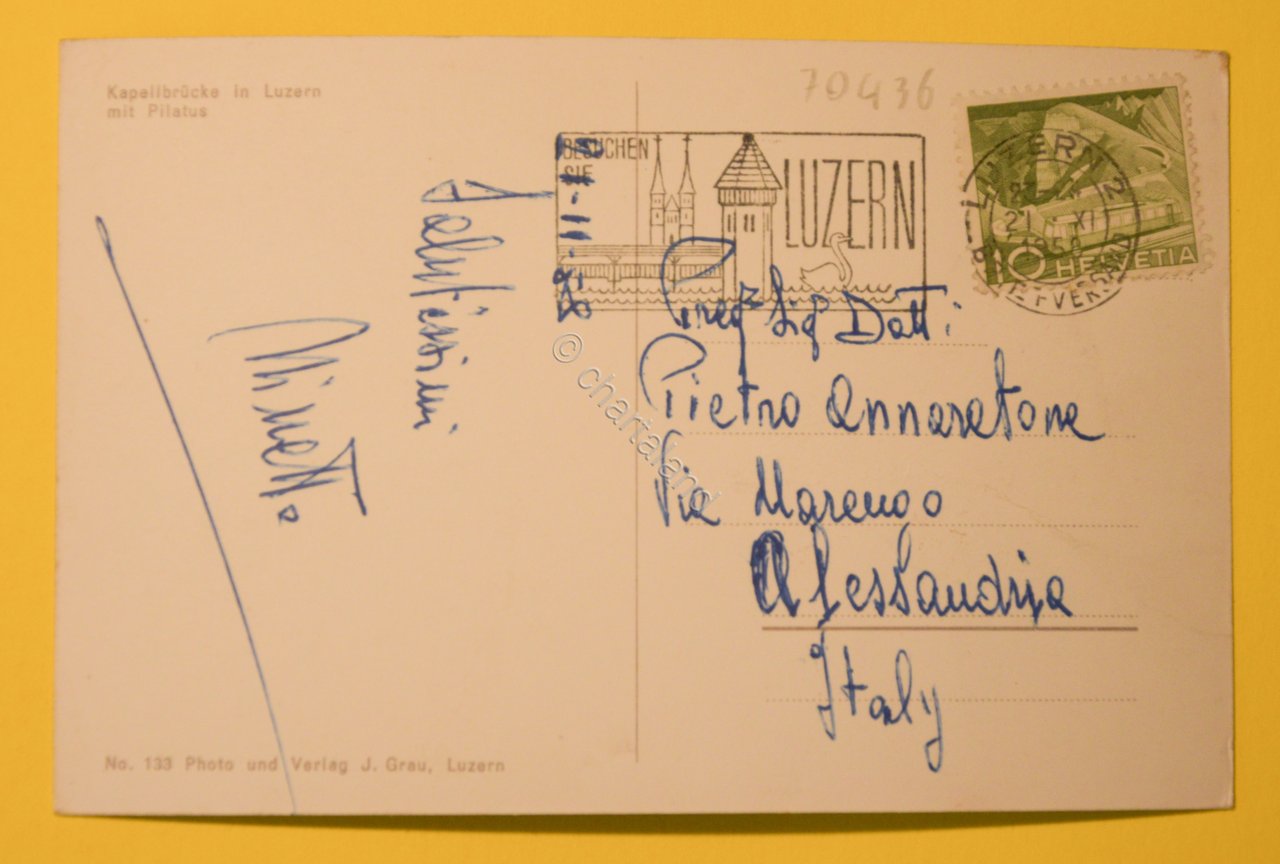 Kapellbrücke in Luzern
mit Pilatus
70436
BESUCHEN
SIE
LUZERN
LUZERN 2
21. XI
1958
BRIEFVERSAND
10 HELVETIA
Salutissimi
Ninetta
Preg Sig Dott.
Pietro Annaratone
Via Marengo
Alessandria
Italy
© chartaland
No. 133 Photo und Verlag J. Grau, Luzern